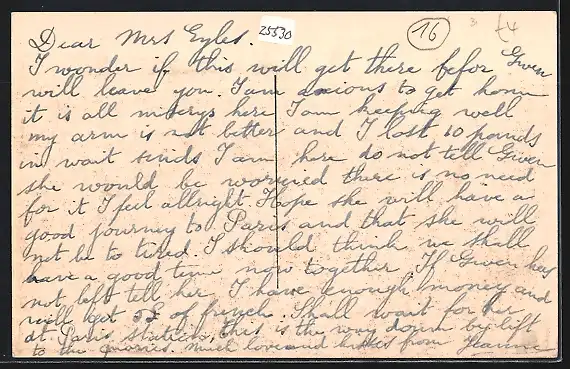 25530
16
3
£4
Dear Mrs Eyles.
I wonder if this will get there befor Gwen
will leave you. I am anxious to get home
it is all miserys here I am keeping well
my arm is not better and I lost 10 pounds
in wait sinds I am here do not tell Gwen
she would be worried there is no need
for it I feel allright. Hope she will have a
good journey to Paris and that she will
not be to tired. I should think we shall
have a good time now together. If Gwen hey
not left tell her I have enough money and
will get of french. Shall wait for her
at Paris station, this is the way down by lift
to the much love and kisses from Jeanne